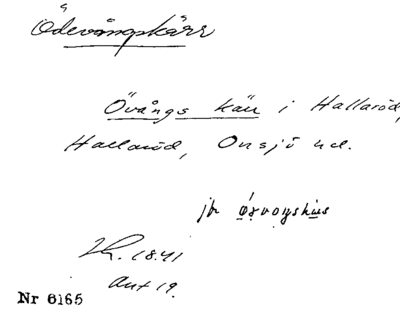 Ödevångskärr
Övångs kärr i Hallaröd,
Hallaröd, Onsjö hd.
jfr
18.41
Avt 19.
Nr 6165